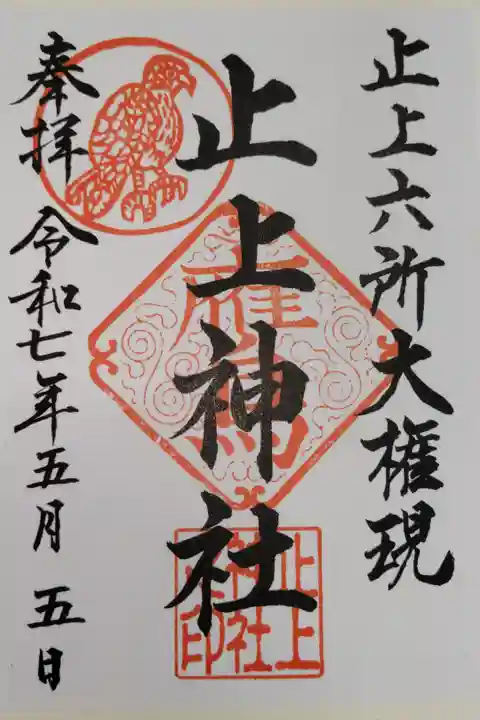 止上六所大権現
止上神社
奉拝 令和七年五月 五日
鷹
止上
神社
之印